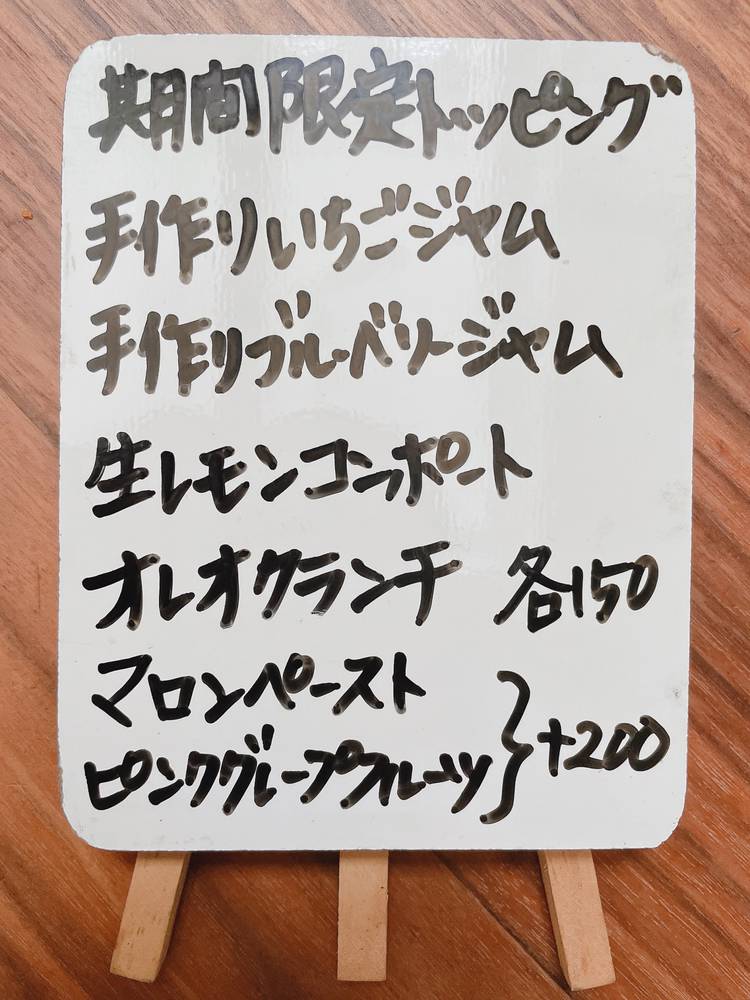 期間限定トッピング
手作りいちごジャム
手作りブルーベリージャム
生レモンコンポート
オレオクランチ 各150
マロンペースト
ピンクグレープフルーツ } +200